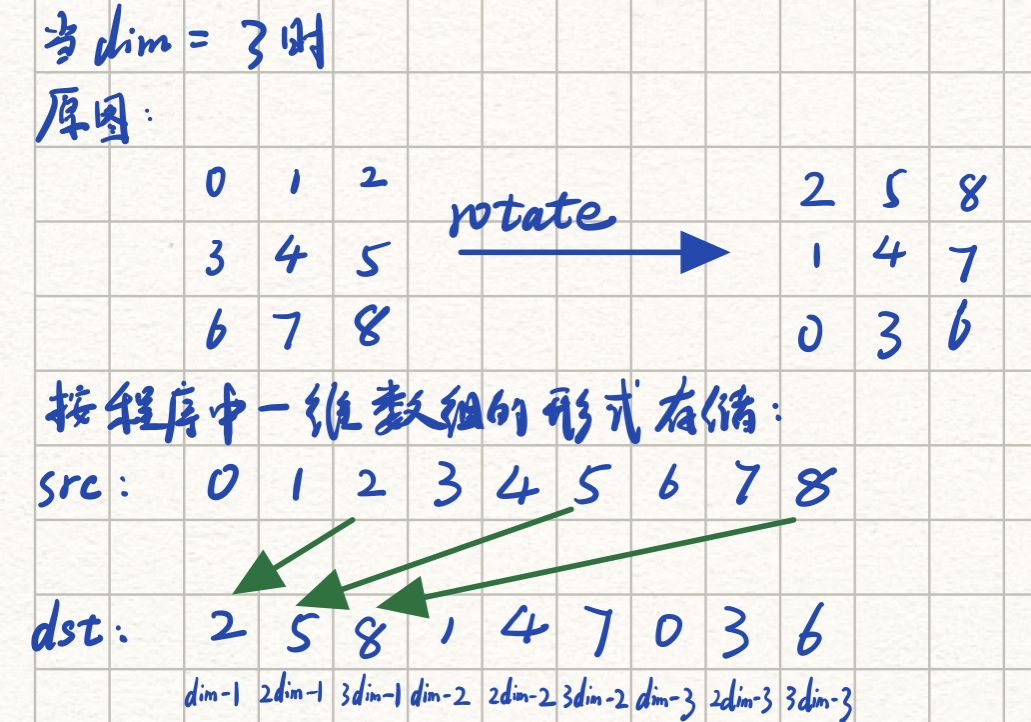 当dim = 3时
原图:
0 1 2 rotate 2 5 8
3 4 5 1 4 7
6 7 8 0 3 6
按程序中一维数组的形式存储:
src: 0 1 2 3 4 5 6 7 8
dst: 2 5 8 1 4 7 0 3 6
dim-1 2dim-1 3dim-1 dim-2 2dim-2 3dim-2 dim-3 2dim-3 3dim-3